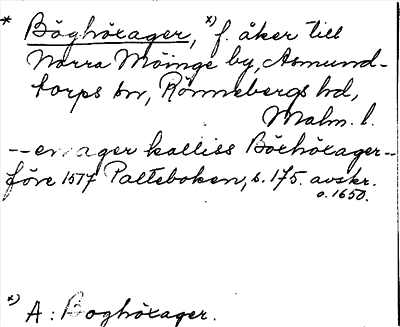 * Böghöxager, *) f. åker till
Norra Möinge by, Asmund-
torps sn, Rönnebergs hd,
Malm. l.
-- en ager kalliss Böehöxager --
före 1517 Palteboken, s. 175. avskr.
o. 1650.
*) A: Boghöxager.